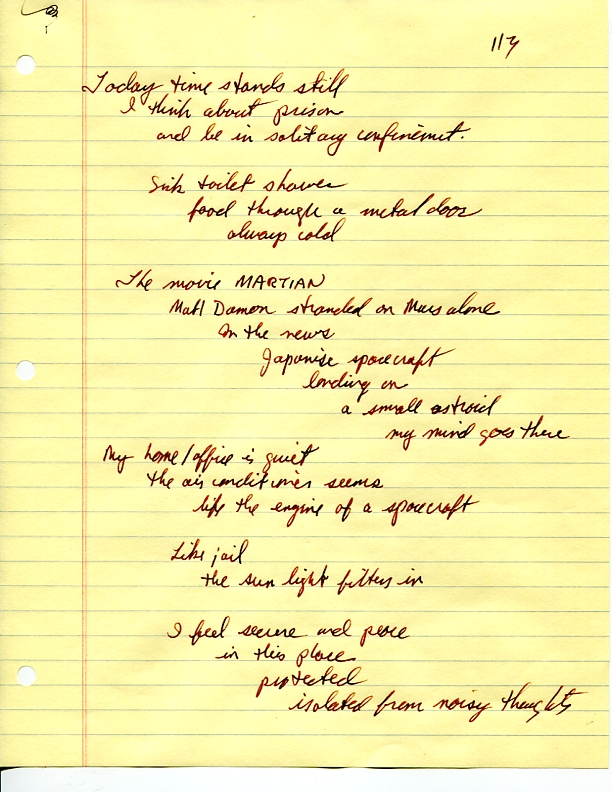 117
Today time stands still
I think about prison
and be in solitary confinement.
Sink toilet shower
food through a metal door
always cold
The movie MARTIAN
Matt Damon stranded on Mars alone
In the news
Japanise spacecraft
landing on
a small astroid
my mind goes there
My home/office is quiet
the air conditioner seems
like the engine of a spacecraft
Like jail
the sun light filters in
I feel secure and peace
in this place
protected
isolated from noisy thoughts